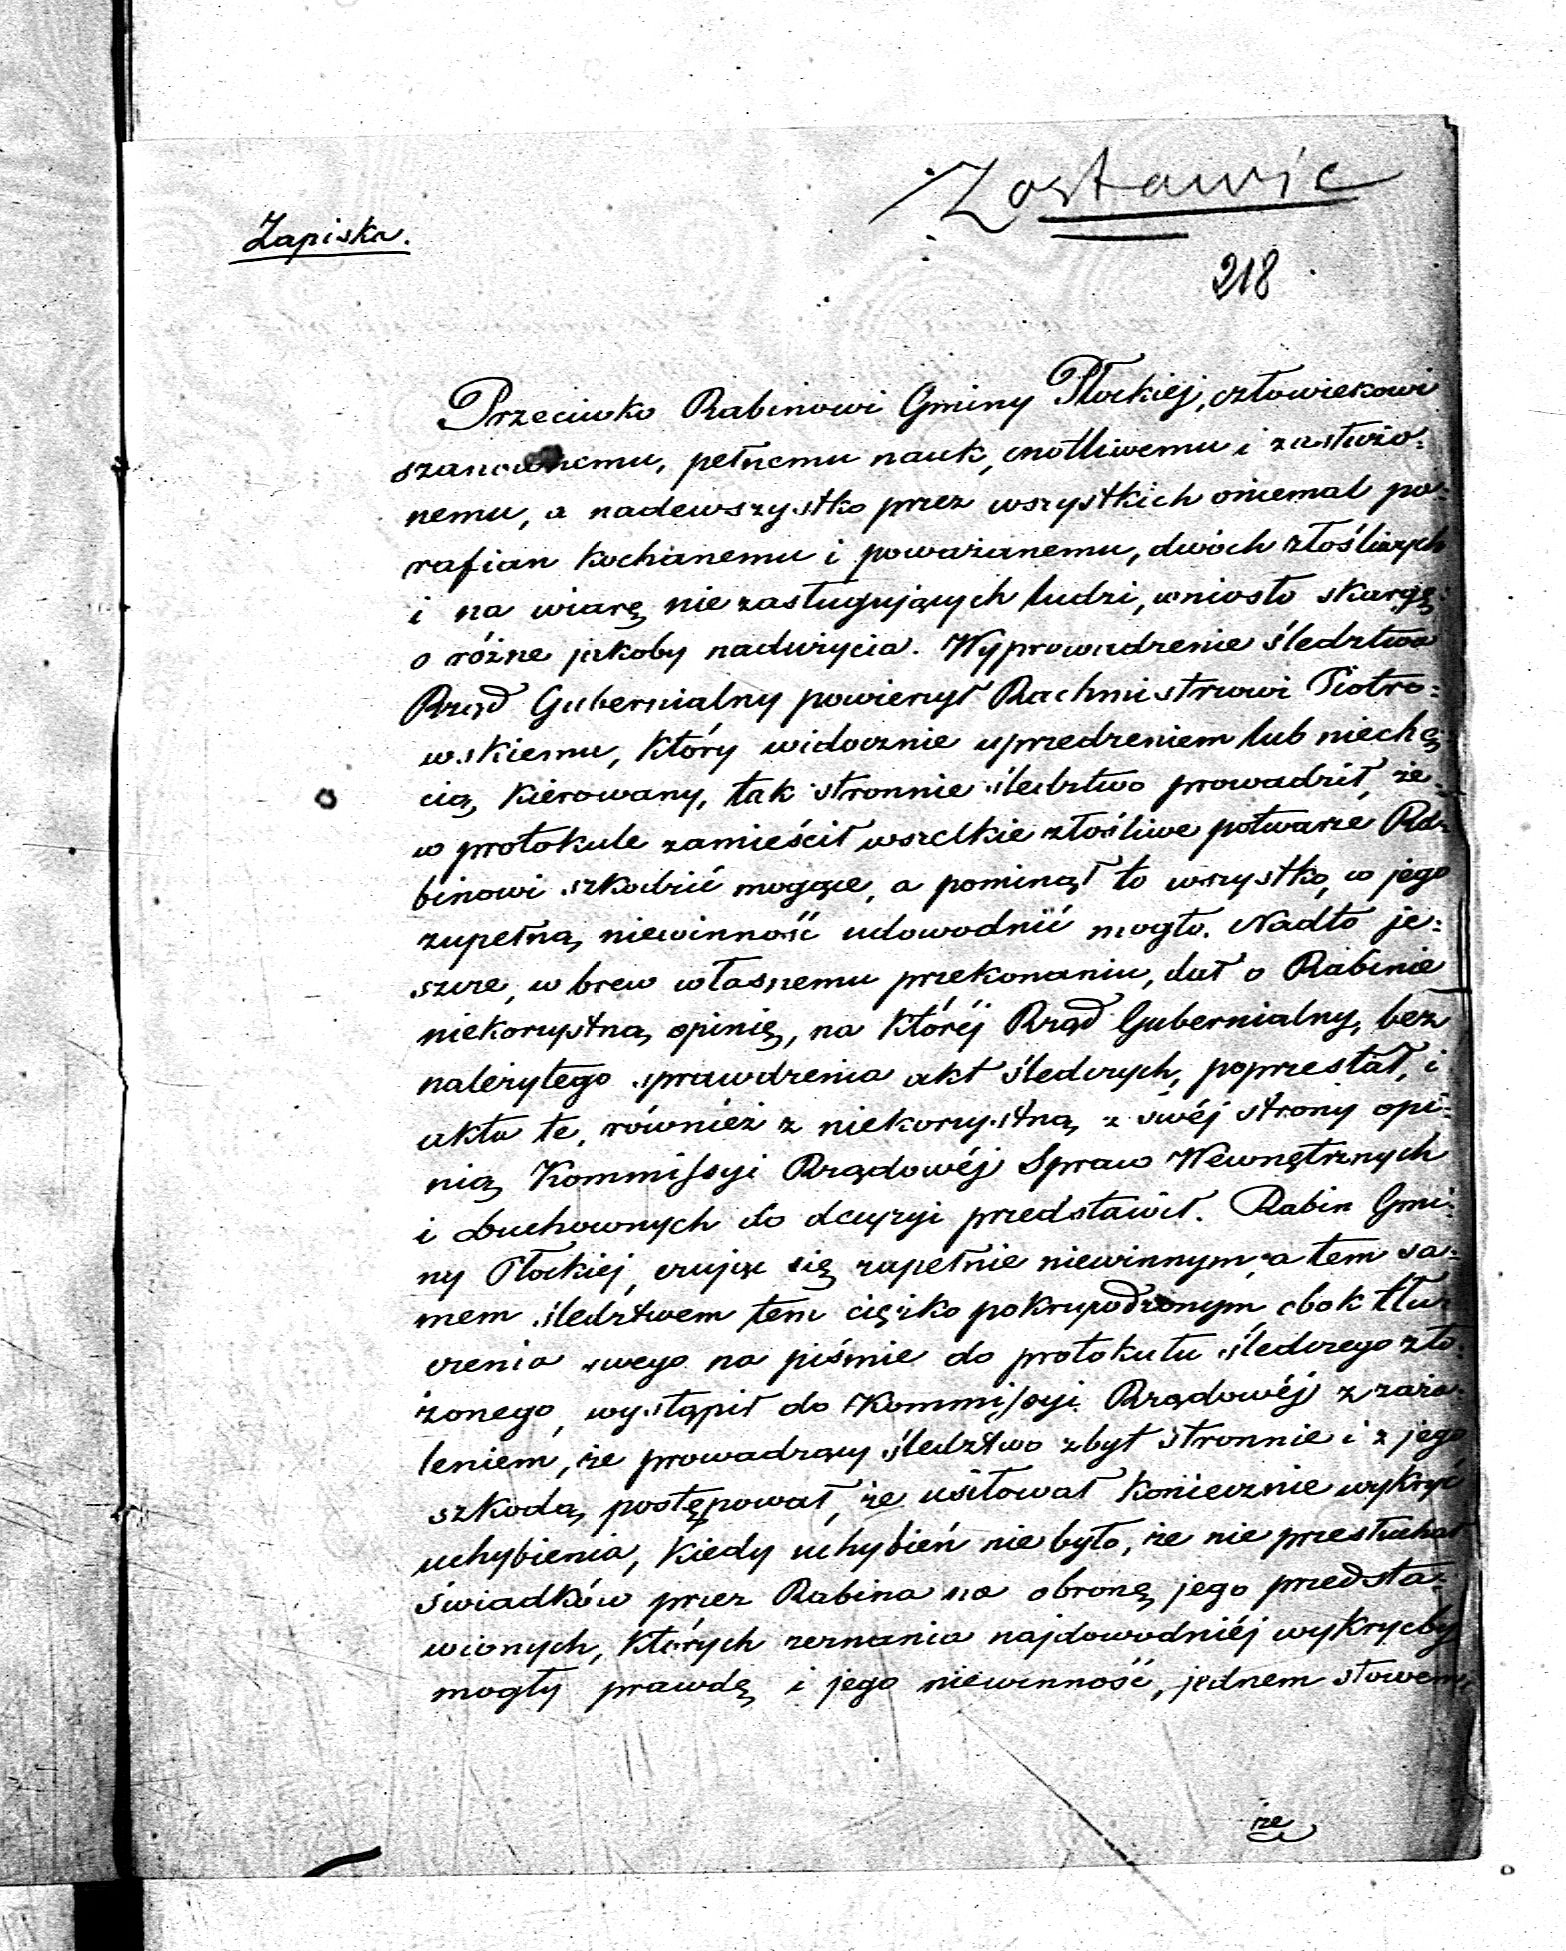 Zostawić
Zapiska.
218
Przeciwko Rabinowi Gminy Płockiej, człowiekowi
szanownemu, pełnemu nauk, cnotliwemu i zasłużo-
nemu, a nadewszystko przez wszystkich niemal pa-
rafian kochanemu i poważanemu, dwóch złośliwych
i na wiarę nie zasługujących ludzi, wniosło skargę
o różne jakoby nadużycia. Wyprowadzenie śledztwa
Rząd Gubernialny powierzył Rachmistrzowi Piotro-
wskiemu, który widocznie uprzedzeniem lub niechę
cią, kierowany, tak stronnie śledztwo prowadził, że
w protokule zamieścił wszelkie złośliwe potwarze Ra-
binowi szkodzić mogące, a pominął to wszystko, co jego
zupełną niewinność udowodnić mogło. Nadto je-
szcze, w brew własnemu przekonaniu, dał o Rabinie
niekorzystną opinię, na któréj Rząd Gubernialny, bez
należytego sprawdzenia akt śledczych, poprzestał, i
akta te, również z niekorzystną z swéj strony opi-
nią Kommissyi Rządowéj Spraw Wewnętrznych
i Duchownych do decyzyi przedstawił. Rabin Gmi-
ny Płockiej, czując się zupełnie niewinnym, a tem sa-
mem śledztwem tem ciężko pokrzywdzonym, obok tłu-
czenia swego na piśmie do protokułu śledczego zło-
żonego, wystąpił do Kommissyi Rządowéj z zaża-
leniem, że prowadzący śledztwo zbyt stronnie i z jego
szkodą postępował, że usiłował koniecznie wykryć
uchybienia, kiedy uchybień nie było, że nie przesłuchał
świadków przez Rabina na obronę jego przedsta-
wionych, których zeznania najdowodniéj wykryćby
mogły prawdę i jego niewinność, jednem słowem,
że